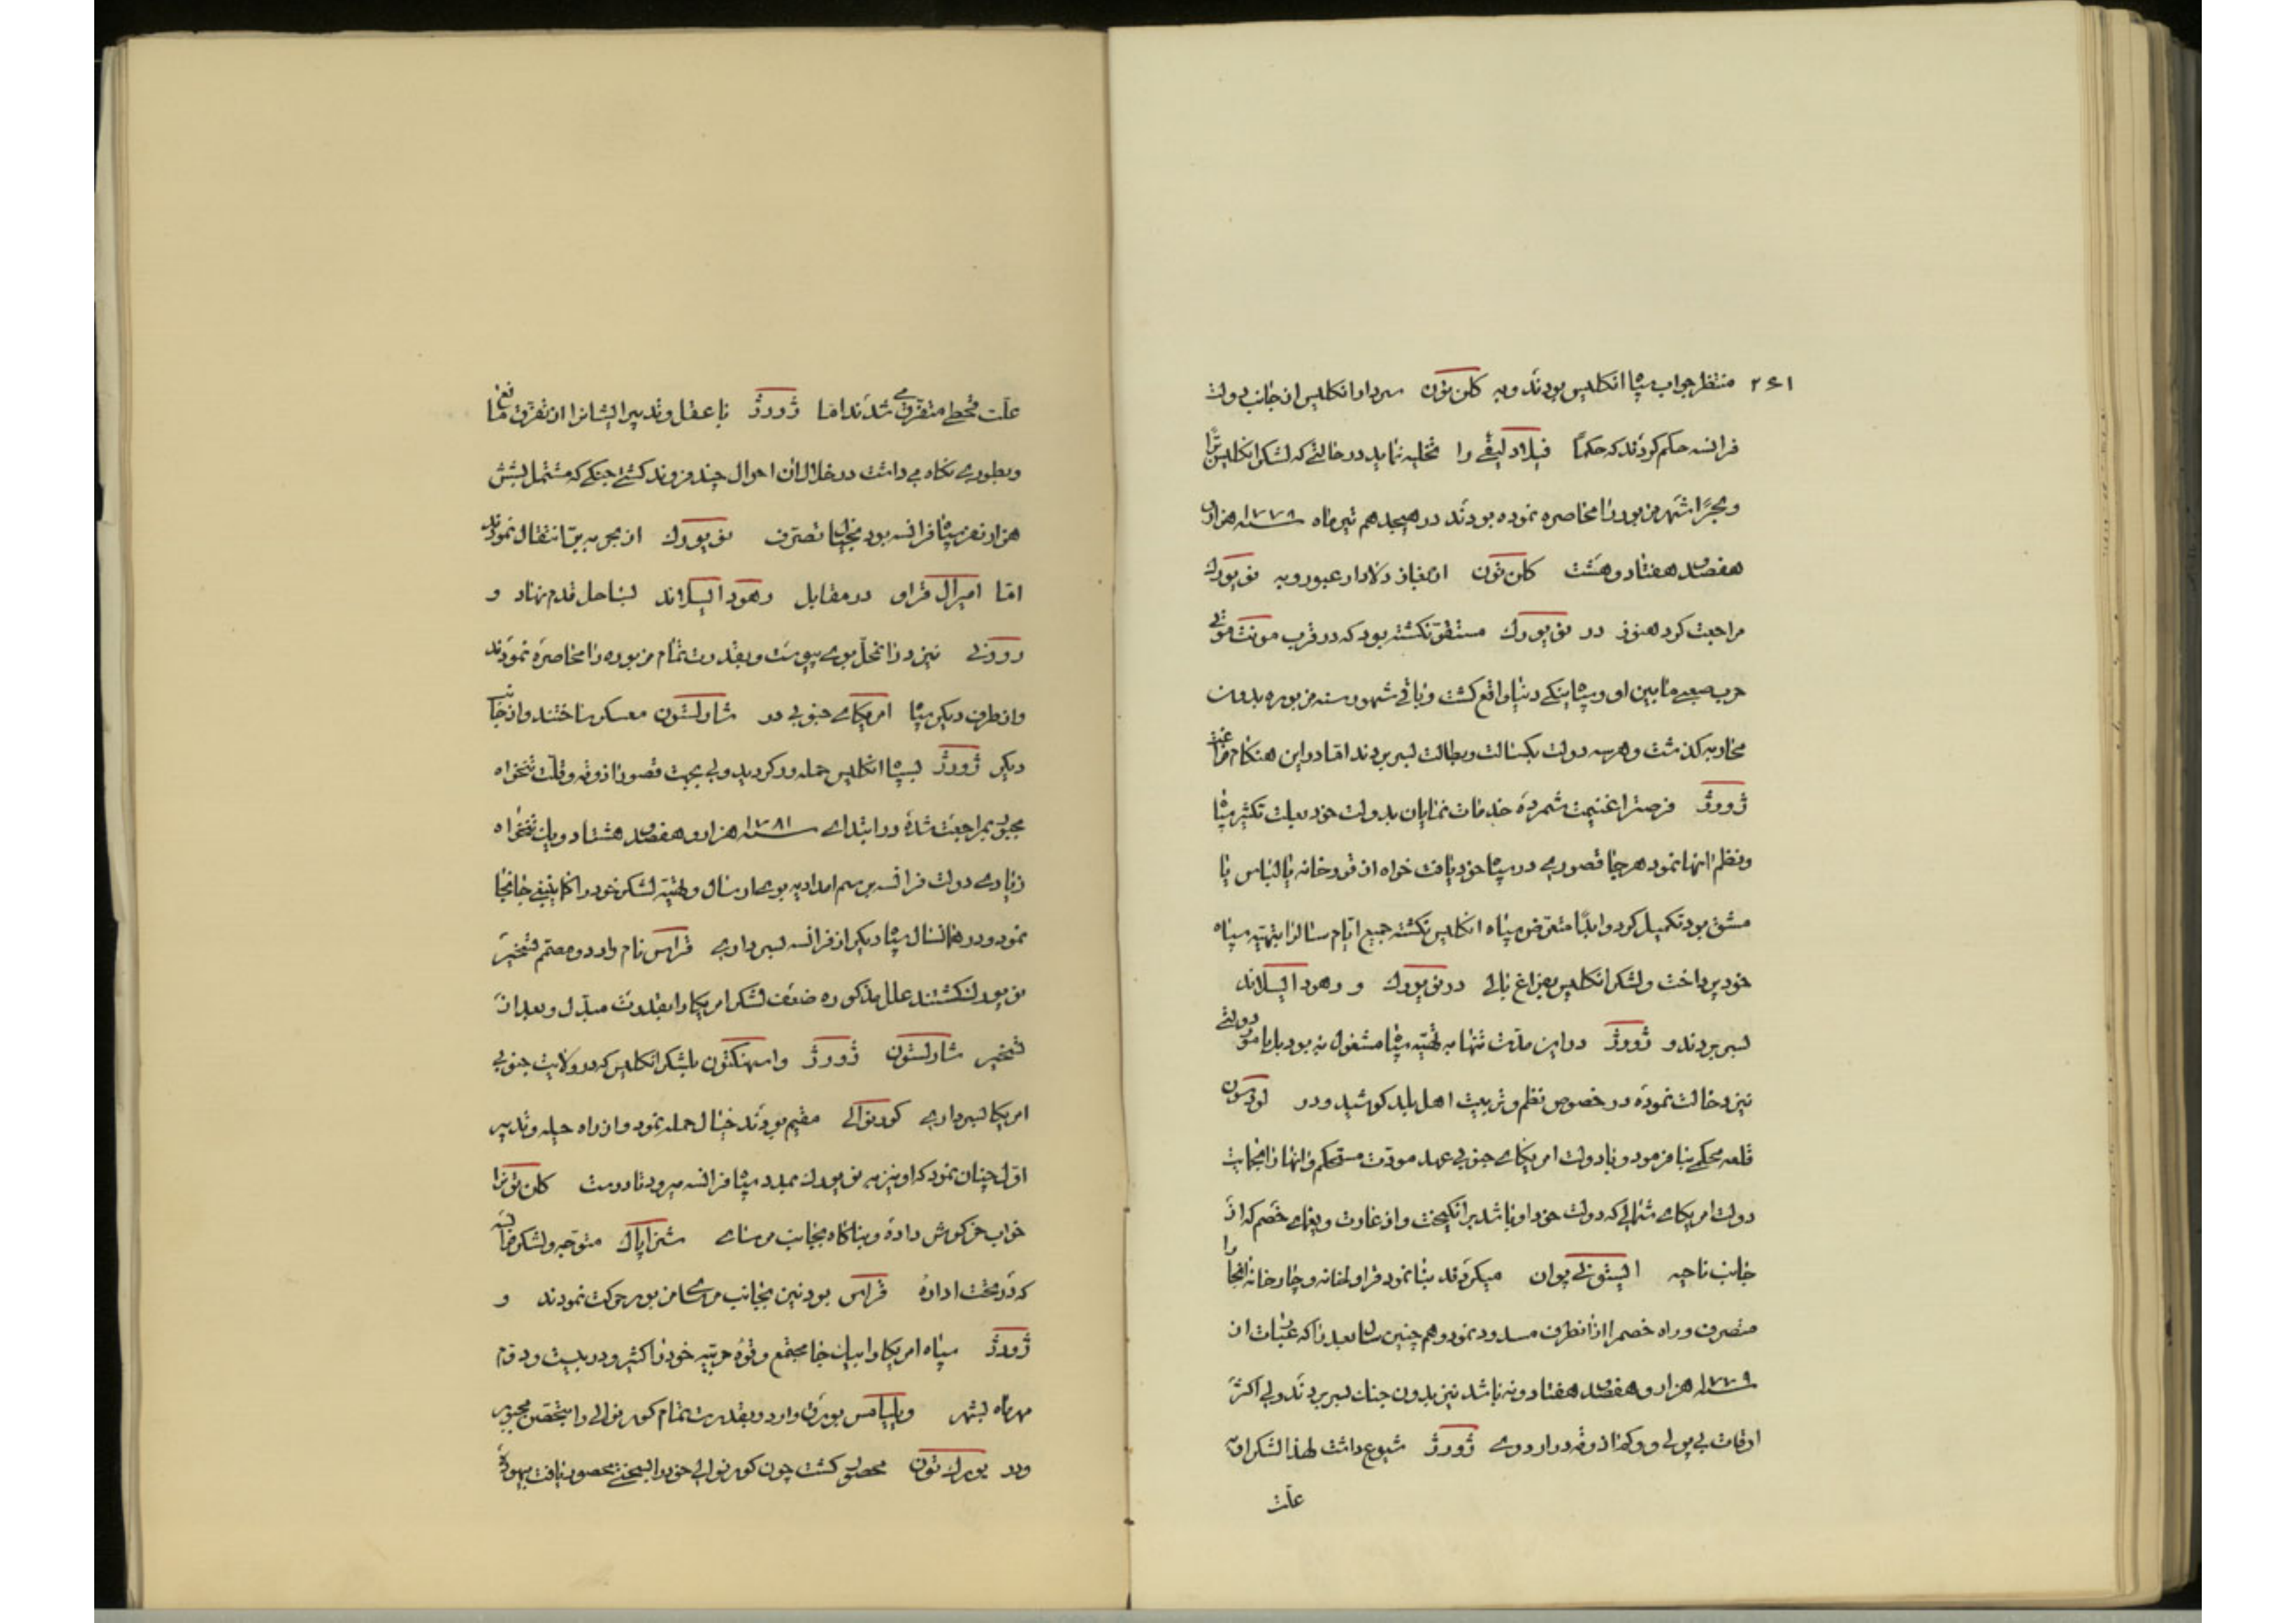 ۲۶۱ منتظر جواب سپاه انکلیس بودند و به کلن تون سردار انکلیس از جانب دولت
فرانسه حکم کردند که حکماً فیلادلیفی را تخلیه نماید در حالتی که لشکر انکلیس برّاً
و بحراً شهر مزبور را محاصره نموده بودند در هیجدهم تیرماه سنه ۱۷۷۹ هزار و
هفصد و هفتاد و هشت کلن تون از دلاوار عبور و به نویورک
مراجعت کرد هنوز در نویورک مستقرّ نکشته بود که در قرب مونت موثی
حرب صعبی مابین او و سپاه ینکی دنیا واقع کشت و باقی شهور سنه مزبوره بدون
محاربه کذشت و هر سه دولت بکسالت و بطالت بسر بردند امّا در این هنکام فراغت
ژورژ فرصت را غنیمت شمرده خدمات نمایان بدولت خود بعلت تکثیر سپاه
و نظم انها نمود هر جا قصوری در سپاه خود یافت خواه از قورخانه یا لباس یا
مشق بود تکمیل کرد و ابداً متعرّض سپاه انکلیس نکشته جمیع ایّام سال را بتهیّه سپاه
خود پرداخت و لشکر انکلیس بفراغ بالی در نویورک و رهود ایسلاند
بسر بردند و ژورژ در این مدّت تنها به تهیّه سپاه مشغول نه بود بلبامور دولتی
نیز دخالت نموده در خصوص نظم و تربیت اهل بلد کوشید و در
قلعه محکمی بنا فرمود و با دولت امریکای جنوبی عهد مودّت مستحکم و انها را بحمایت
دولت امریکای شمالی که دولت خود او باشد برانکیخت و از غارت و یغمای خصم که از
جانب ناحیه استونی پوان میکردند بنا نمود قراولخانه و چاپارخانه انجا را
متصرف و راه خصم را از انطرف مسدود نمود و هم چنین سال بعد را که عبارت از
سنه ۱۷۷۹ هزار و هفصد و هفتاد و نه باشد نیز بدون جنک بسر بردند ولی اکثر
اوقات بی پولی و و کم اذوقه در اردوی ژورژ شیوع داشت لهذا لشکر او به
علّت
علّت قحطی متفرّق می شدند امّا ژورژ با عقل و تدبیر ایشان را از تفرّق مانع
و بطوری نکاه می داشت در خلال ان احوال چند فروند کشتی جنکی که مشتمل بشش
هزار نفر سپاه فرانسه بود بخیال تصرّف نویورک از بحر به برّ انتقال نمودند
امّا امیرال قراو در مقابل رهود ایسلاند بساحل قدم نهاد و
رودنی نیز در انمحل بوی پیوست و بقدرت تمام مزبوره را محاصره نمودند
و از طرف دیکر سپاه امریکای جنوبی در شارلستون معسکر ساختند و از جانب
دیکر ژورژ بسپاه انکلیس حمله ور کردید ولی بجهت قصور اذوقه و قلّت تنخواه
مجبور بمراجعت شده در ابتدای سنه ۱۷۸۱ هزار و هفصد هشتاد و یک تنخواه
زیادی دولت فرانسه برسم امداد به بوی ارسال و تهیّه لشکر خود را کما ینبغی جابجا
نمود و در همانسال سپاه دیکر از فرانسه بسرداری قراس نام وارد و مصمّم تسخیر
نویورک کشتند علل مذکوره ضعف لشکر امریکا را بقدرت مبدّل و بعد از
تسخیر شارلستون ژورژ واسهنکتون بلشکر انکلیس که در ولایت جنوبی
امریکا بسرداری کورنوالی مقیم بودند خیال حمله نمود و از راه حیله و تدبیر
اوّل چنان نمود که او نیز به نویورک بمدد سپاه فرانسه میرود تا درست کلن تون را
خواب خرکوش داده و بناکاه بجانب مرسای شزاپاک متوجه و لشکر فرانسه
که در تحت اداره قراس بود نیز بجانب مرسای مزبور حرکت نمودند و
ژورژ سپاه امریکا را بیک جا مجتمع و قوّه حربیّه خود را اکثر و در بیست و دوّم
مهرماه بشهر ویلیامس بورق وارد و بقدرت تمام کورنوالی را بتحصّن مجبور
و در یورک تون محصور کشت چون کورنوالی خود را بسختی محصور یافت بیهوده